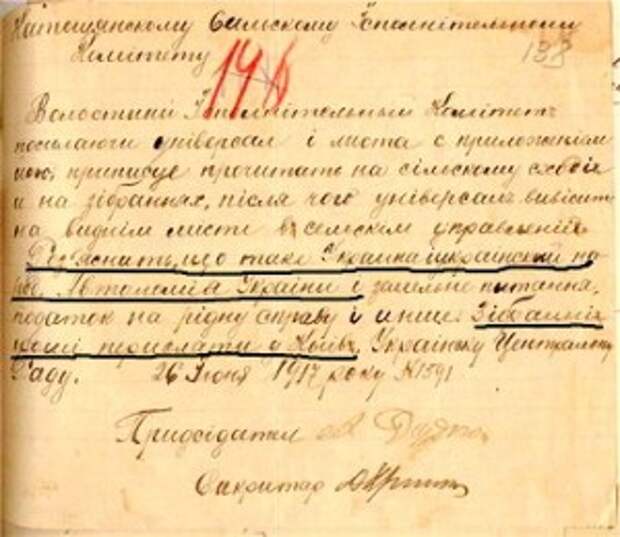 СельскомуІсполнітельному
Комітету
196
138
Волостний Ісполнітельный Комітетъ
посилаючи універсал і листа с приложеніям
приписує прочитать на сільскому сході
и на зібраннях, після чого універсалъ вивісить
на виднім мисти в селскім управленій
Розяснить що таке Украина і украінский на
род, Автономія Украіни і земельне питання,
податок на рідну справу і инше. Зібранні
гроші переслати у Київъ, Українську Центральну
Раду. 26 Іюня 1917 року №1391
Придсідател
Сикритар